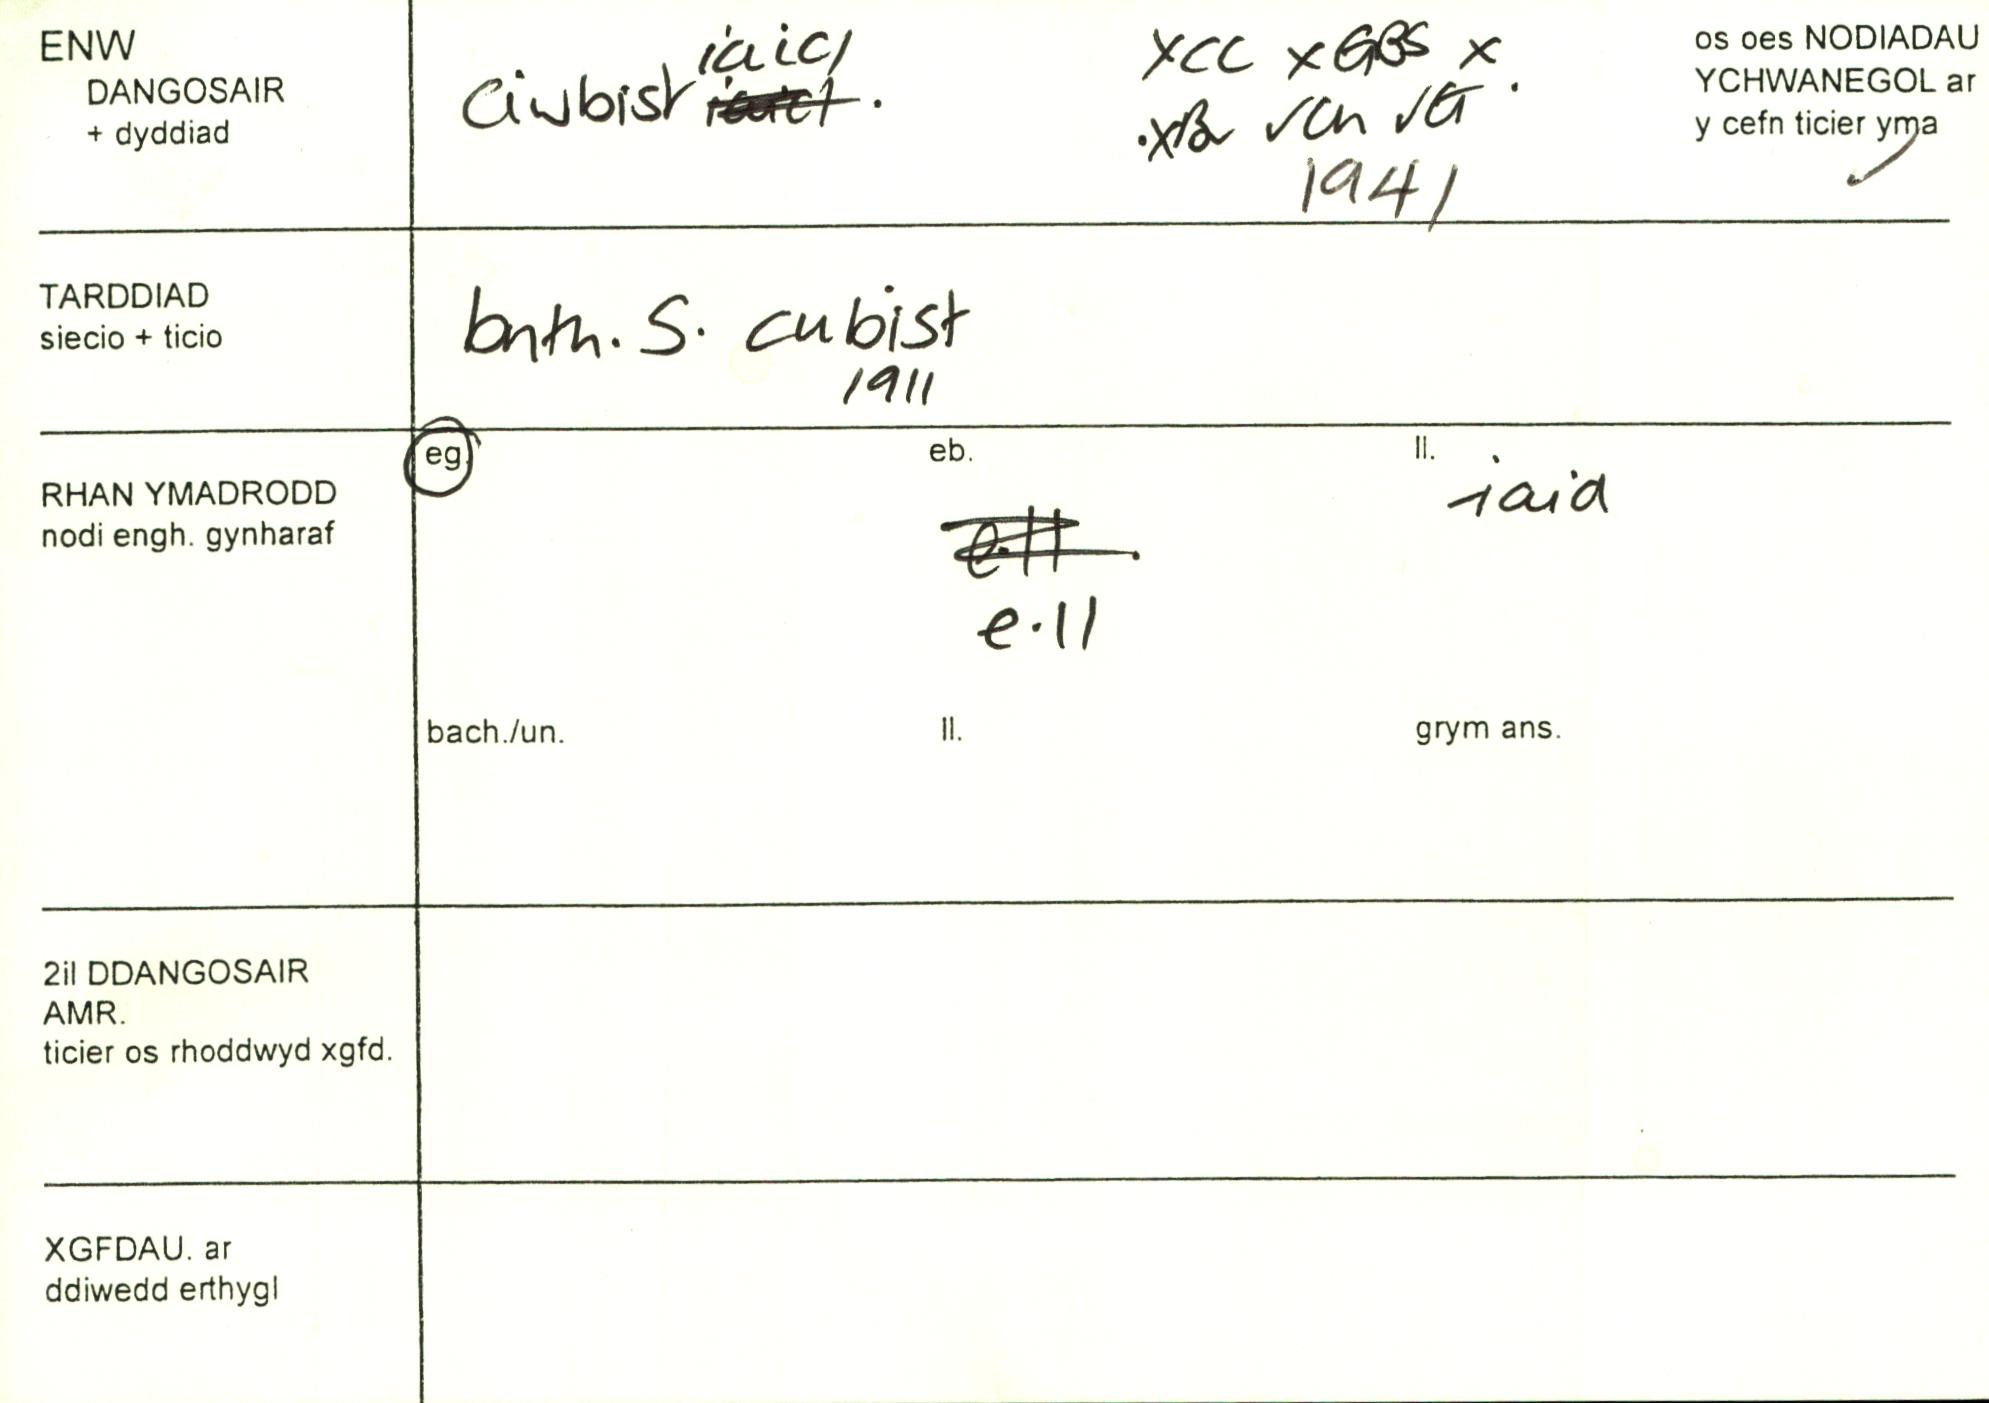 ENW
DANGOSAIR
+ dyddiad
iaid
ciwbist
xCC xGBS x
xBr √Ch √G
1941
os oes NODIADAU
YCHWANEGOL ar
y cefn ticier yma
TARDDIAD
siecio + ticio
bnth. S. cubist
1911
RHAN YMADRODD
nodi engh. gynharaf
eg. eb. ll.
-iaid
e.ll
e.ll
bach./un. ll. grym ans.
2il DDANGOSAIR
AMR.
ticier os rhoddwyd xgfd.
XGFDAU. ar
ddiwedd erthygl